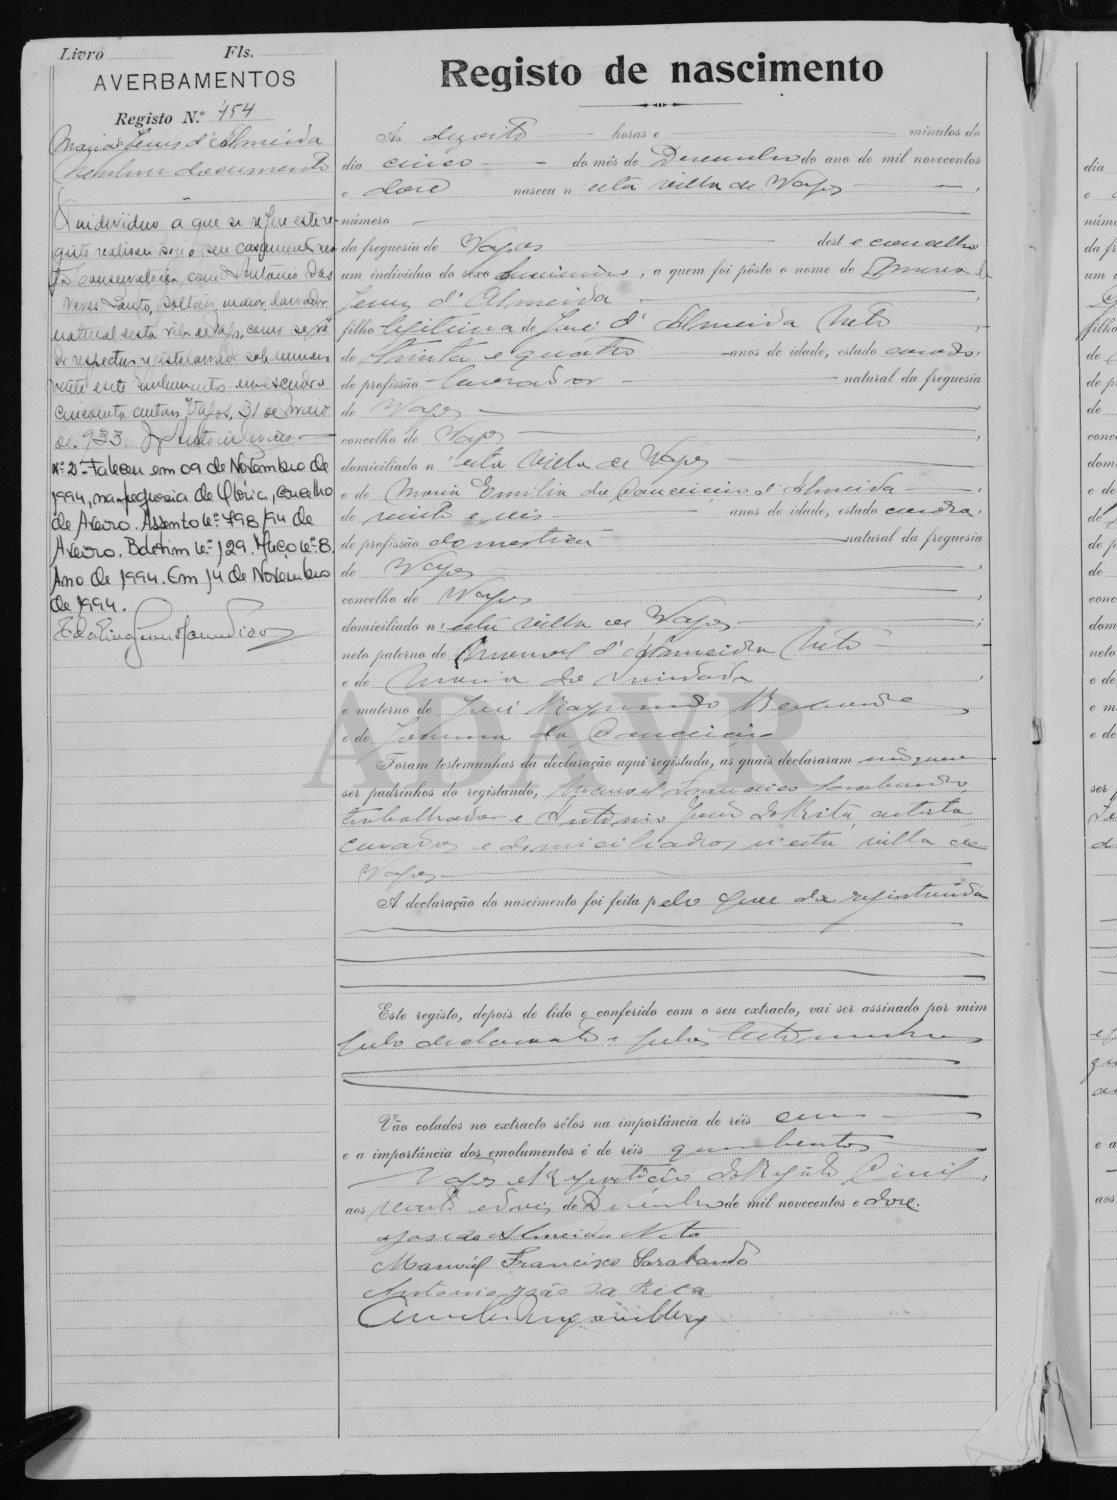 Livro Fls.
AVERBAMENTOS
Registo N.º 454
Maria de Jesus d'Almeida
Nenhum documento
O individuo a que se refere este re-
gisto realisou hoje o seu casamento nes-
ta Conservatoria com António das
Neves Santo, solteiro, maior, lavrador,
natural desta vila de Vagos, como se vê
do respectivo registo lavrado sob numero
vinte e sete Emolumentos um escudo e
cincoenta centavos. Vagos, 31 de Maio
de 933.
Nº 2 - Faleceu em 09 de Novembro de
1994, na freguesia de Glória, concelho
de Aveiro. Assento nº 798/94 de
Aveiro. Boletim nº 129. Maço nº 8.
Ano de 1994. Em 14 de Novembro
de 1994.
Registo de nascimento
Ás dezoito horas e minutos do
dia cinco do mês de Dezembro do ano de mil novecentos
e doze nasceu n'esta villa de Vagos,
número
da freguesia de Vagos dest e concelho
um indivíduo do sexo feminino, a quem foi pôsto o nome de Maria de
Jesus d'Almeida
filho legitima de José d'Almeida Neto,
de trinta e quatro anos de idade, estado casado,
de profissão lavrador natural da freguesia
de Vagos,
concelho de Vagos,
domiciliado n'esta villa de Vagos
e de Maria Emilia da Conceicão d'Almeida,
de vinte e seis anos de idade, estado casada,
de profissão domestica natural da freguesia
de Vagos,
concelho de Vagos,
domiciliado n'esta villa de Vagos;
neto paterno de Manuel d'Almeida Neto
e de Maria da Trindade,
e materno de José Raymundo Rezende
e de Joanna da Conceicão
Foram testemunhas da declaração aqui registada, as quais declararam não querer
ser padrinhos do registando, Manuel Francisco Sarabando,
trabalhador e Antonio João da Rita, artista,
casados e domiciliados n'esta villa de
Vagos
A declaração do nascimento foi feita pelo pae da registanda
Este registo, depois de lido e conferido com o seu extracto, vai ser assinado por mim
pelo declarante e pelas testemunhas
Vão colados no extracto sêlos na importância de réis cem
e a importância dos emolumentos é de réis quinhentos
Vagos e Repartição do Registo Civil,
aos vinte e dois de Dezembro de mil novecentos e doze.
José de Almeida Neto
Manuel Francisco Sarabando
Antonio João da Rita
ADAVR